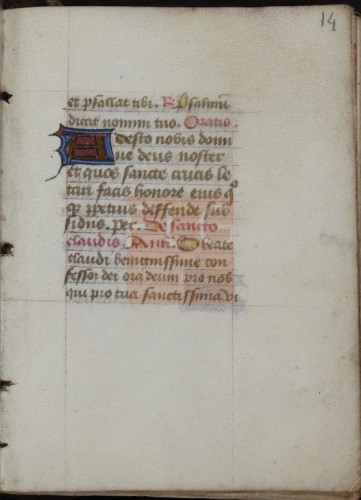 14
et psallat tibi. R Psalmū
dicat nomini tuo. Oratio
Adesto nobis domi
ne deus noster
et quos sancte crucis le
tari facis honore eius qͦ
qꝫ ꝑpetuis deffende sub
sidiis. per. De sancto
claudio. Antī. O beate
claudi benignissime con
fessor dei ora deum pro nob
qui pro tua sanctissima vi